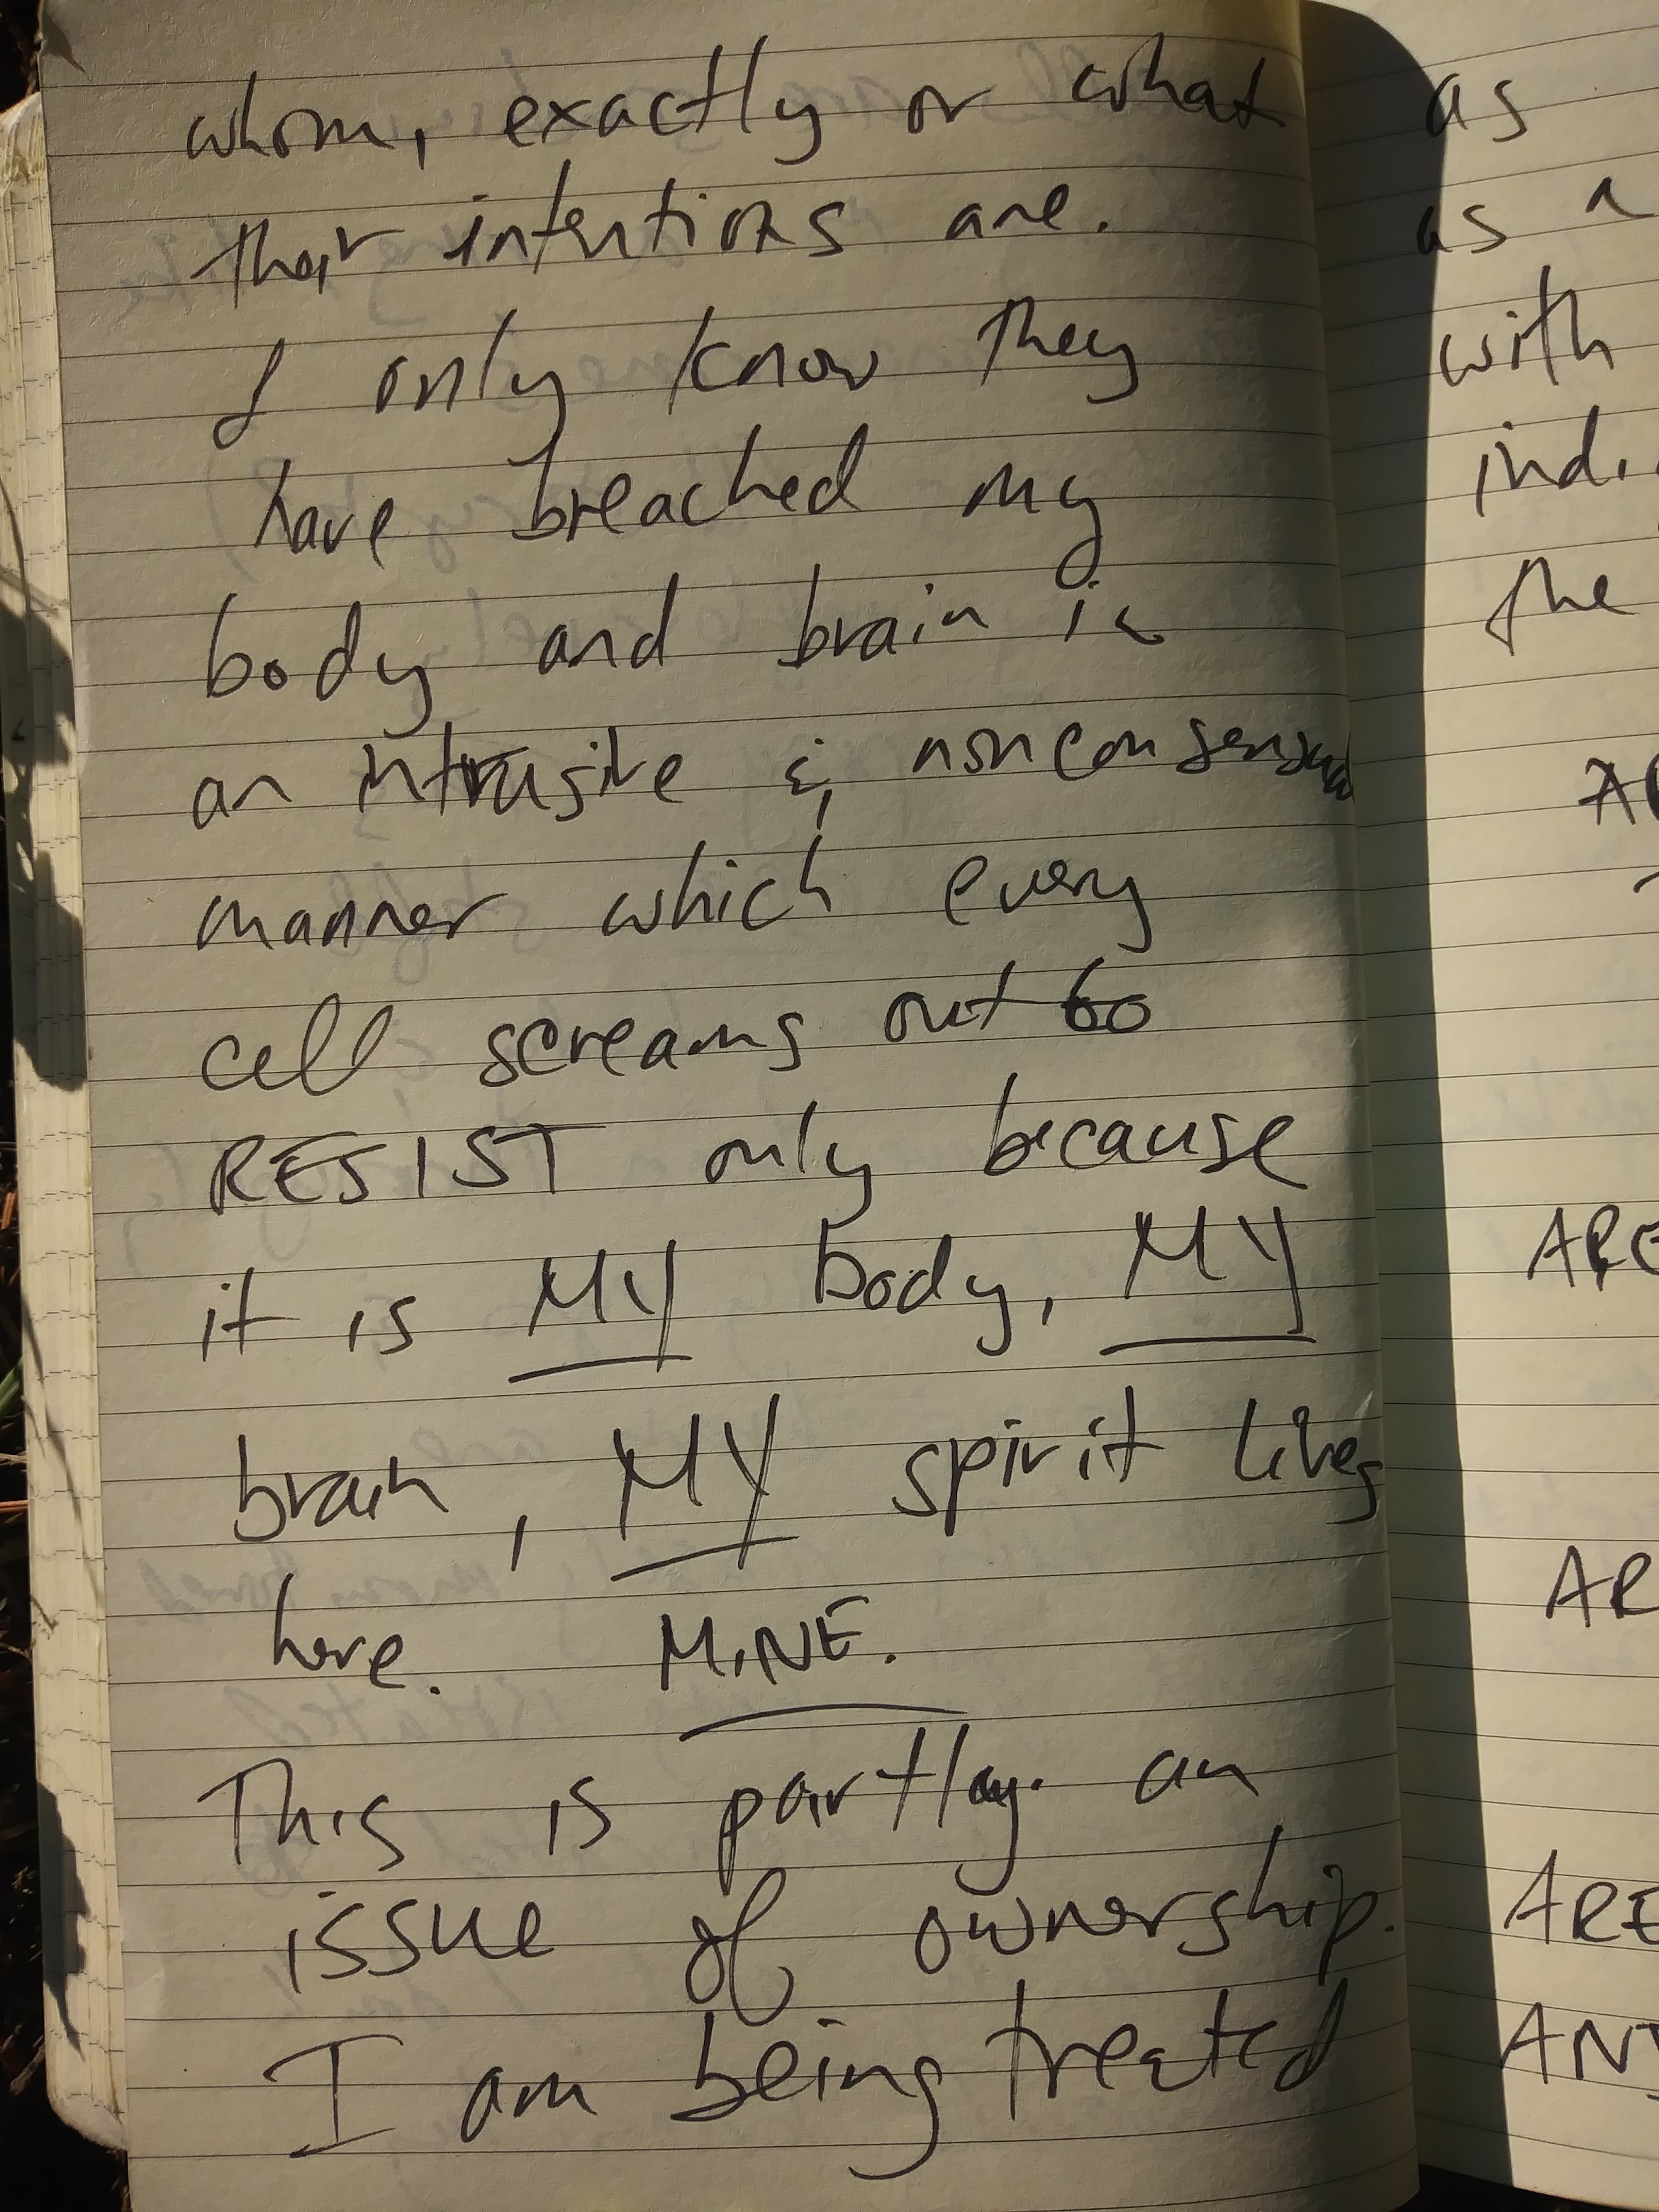 whom, exactly or what
their intentions are.
I only know they
have breached my
body and brain in
an intrusive & nonconsensual
manner which every
cell screams out to
RESIST only because
it is MY body, MY
brain, MY spirit lives
here. MINE.
This is partly an
issue of ownership.
I am being treated
as
as a
with
the
ARE
ARE